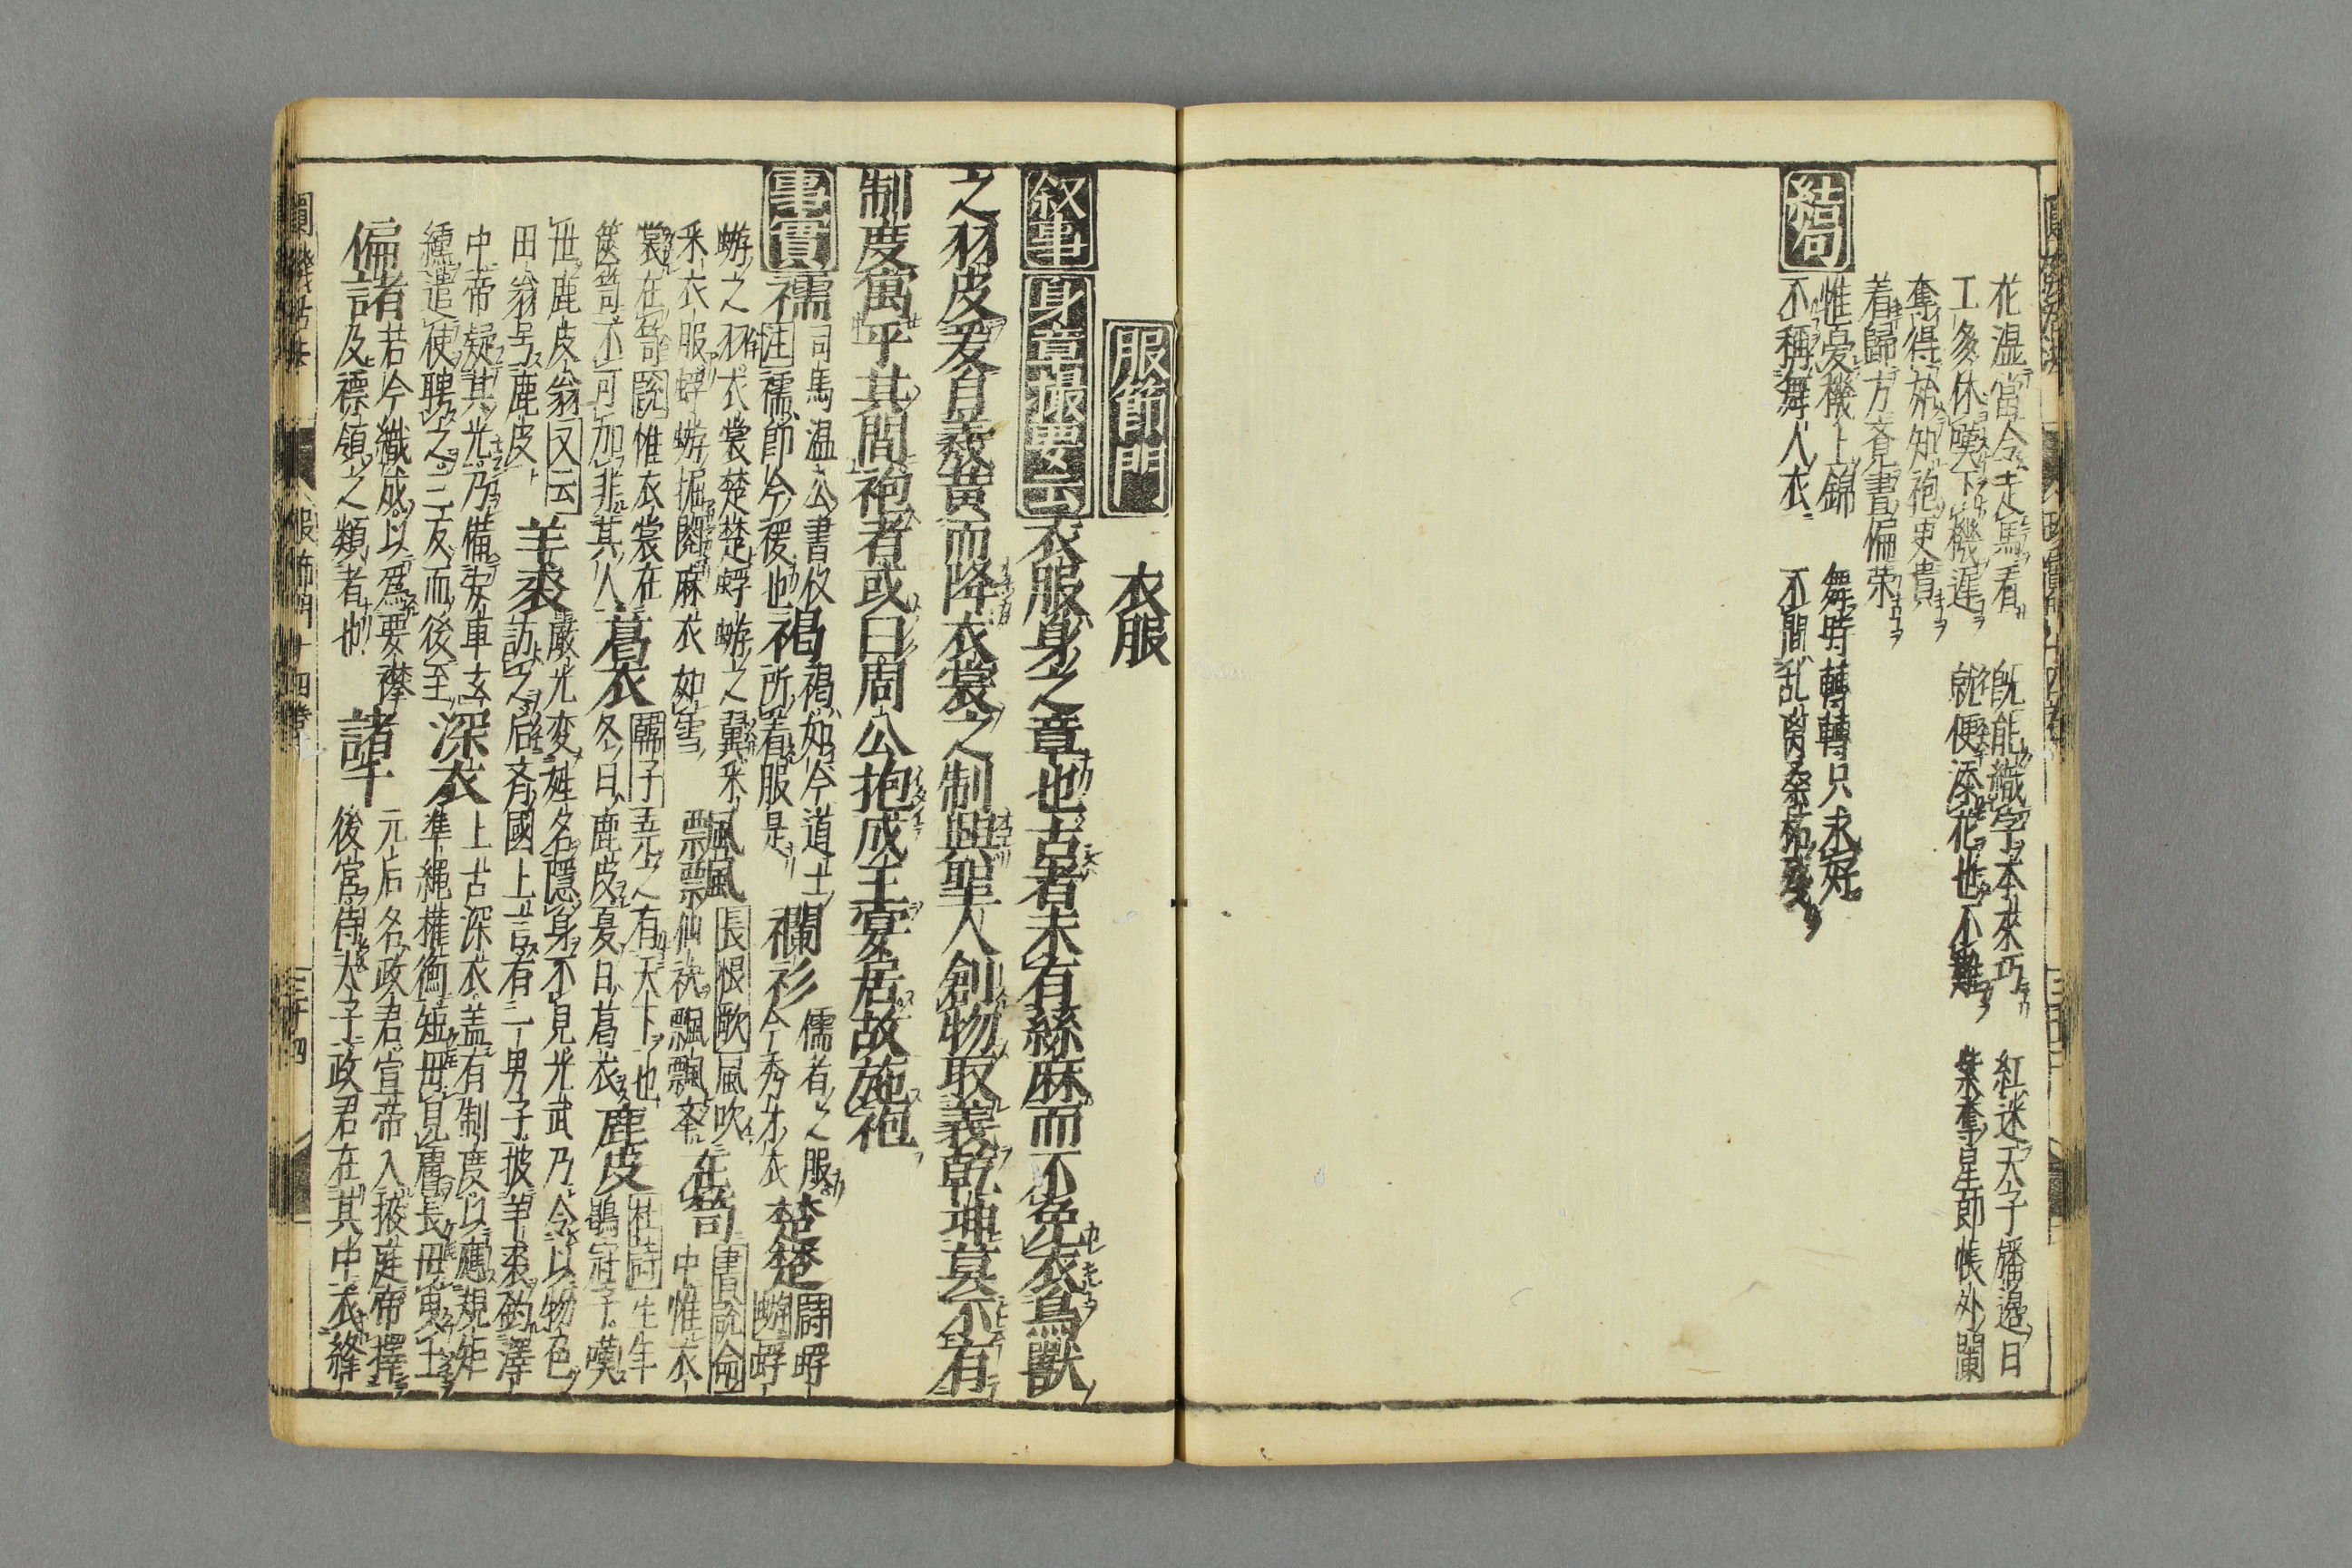 花温宮令走馬看　既能織字本來巧　紅迷天子旛邊日
工多休嘆下機遲　就便添花也不難　紫奪星郎帳外闌
奪得始知袍更貴
着歸方覚晝偏荣
惟憂機上錦　舞時轉轉只求好
結句
不稱舞人衣　不間乱䙝桑柘
服飾門　衣服
叙事　身章撮要云　衣服身之章也古者未有絲麻而不免衣鳥獸
之羽皮爰自羲黄而降衣裳之制興聖人創物取義乾坤莫不有
制度寓乎其間袍者或曰周公抱成王宴居故施袍
事實　襦　司馬温公書仪
注襦即今襖也　褐　褐如今道士
所着服是　襴衫　儒者之服
今秀才衣　楚楚　詩蜉
蝣蜉
蝣之羽衣裳楚楚蜉蝣之翼采
采衣服蜉蝣掘閲麻衣如雪　飄飄　長恨歌風吹
仙袂飄飄李　在笥　書説命
中惟衣
裳在笥説惟衣裳在
篋笥不可加非其人　葛衣　韓子尭之有天下也
冬日鹿皮夏日葛衣　鹿皮　杜詩生年
鶡冠子嘆
世鹿皮翁又云
田翁号鹿皮　羊裘　嚴光変姓名隱身不見光武乃令以物色
訪之后斉國上言有一男子披羊裘釣澤
中帝疑其光乃備安車玄
纁遣使聘之三反而後至　深衣　上古深衣盖有制度以應規矩
準繩權衡短毋見膚長毋
偏諸　若今織成以爲要襻
及褾領之類者也　諸于　元后名政君宣帝入掖庭帝擇
後宮侍太子政君在其中衣絳
服飾門十四巻　三十四